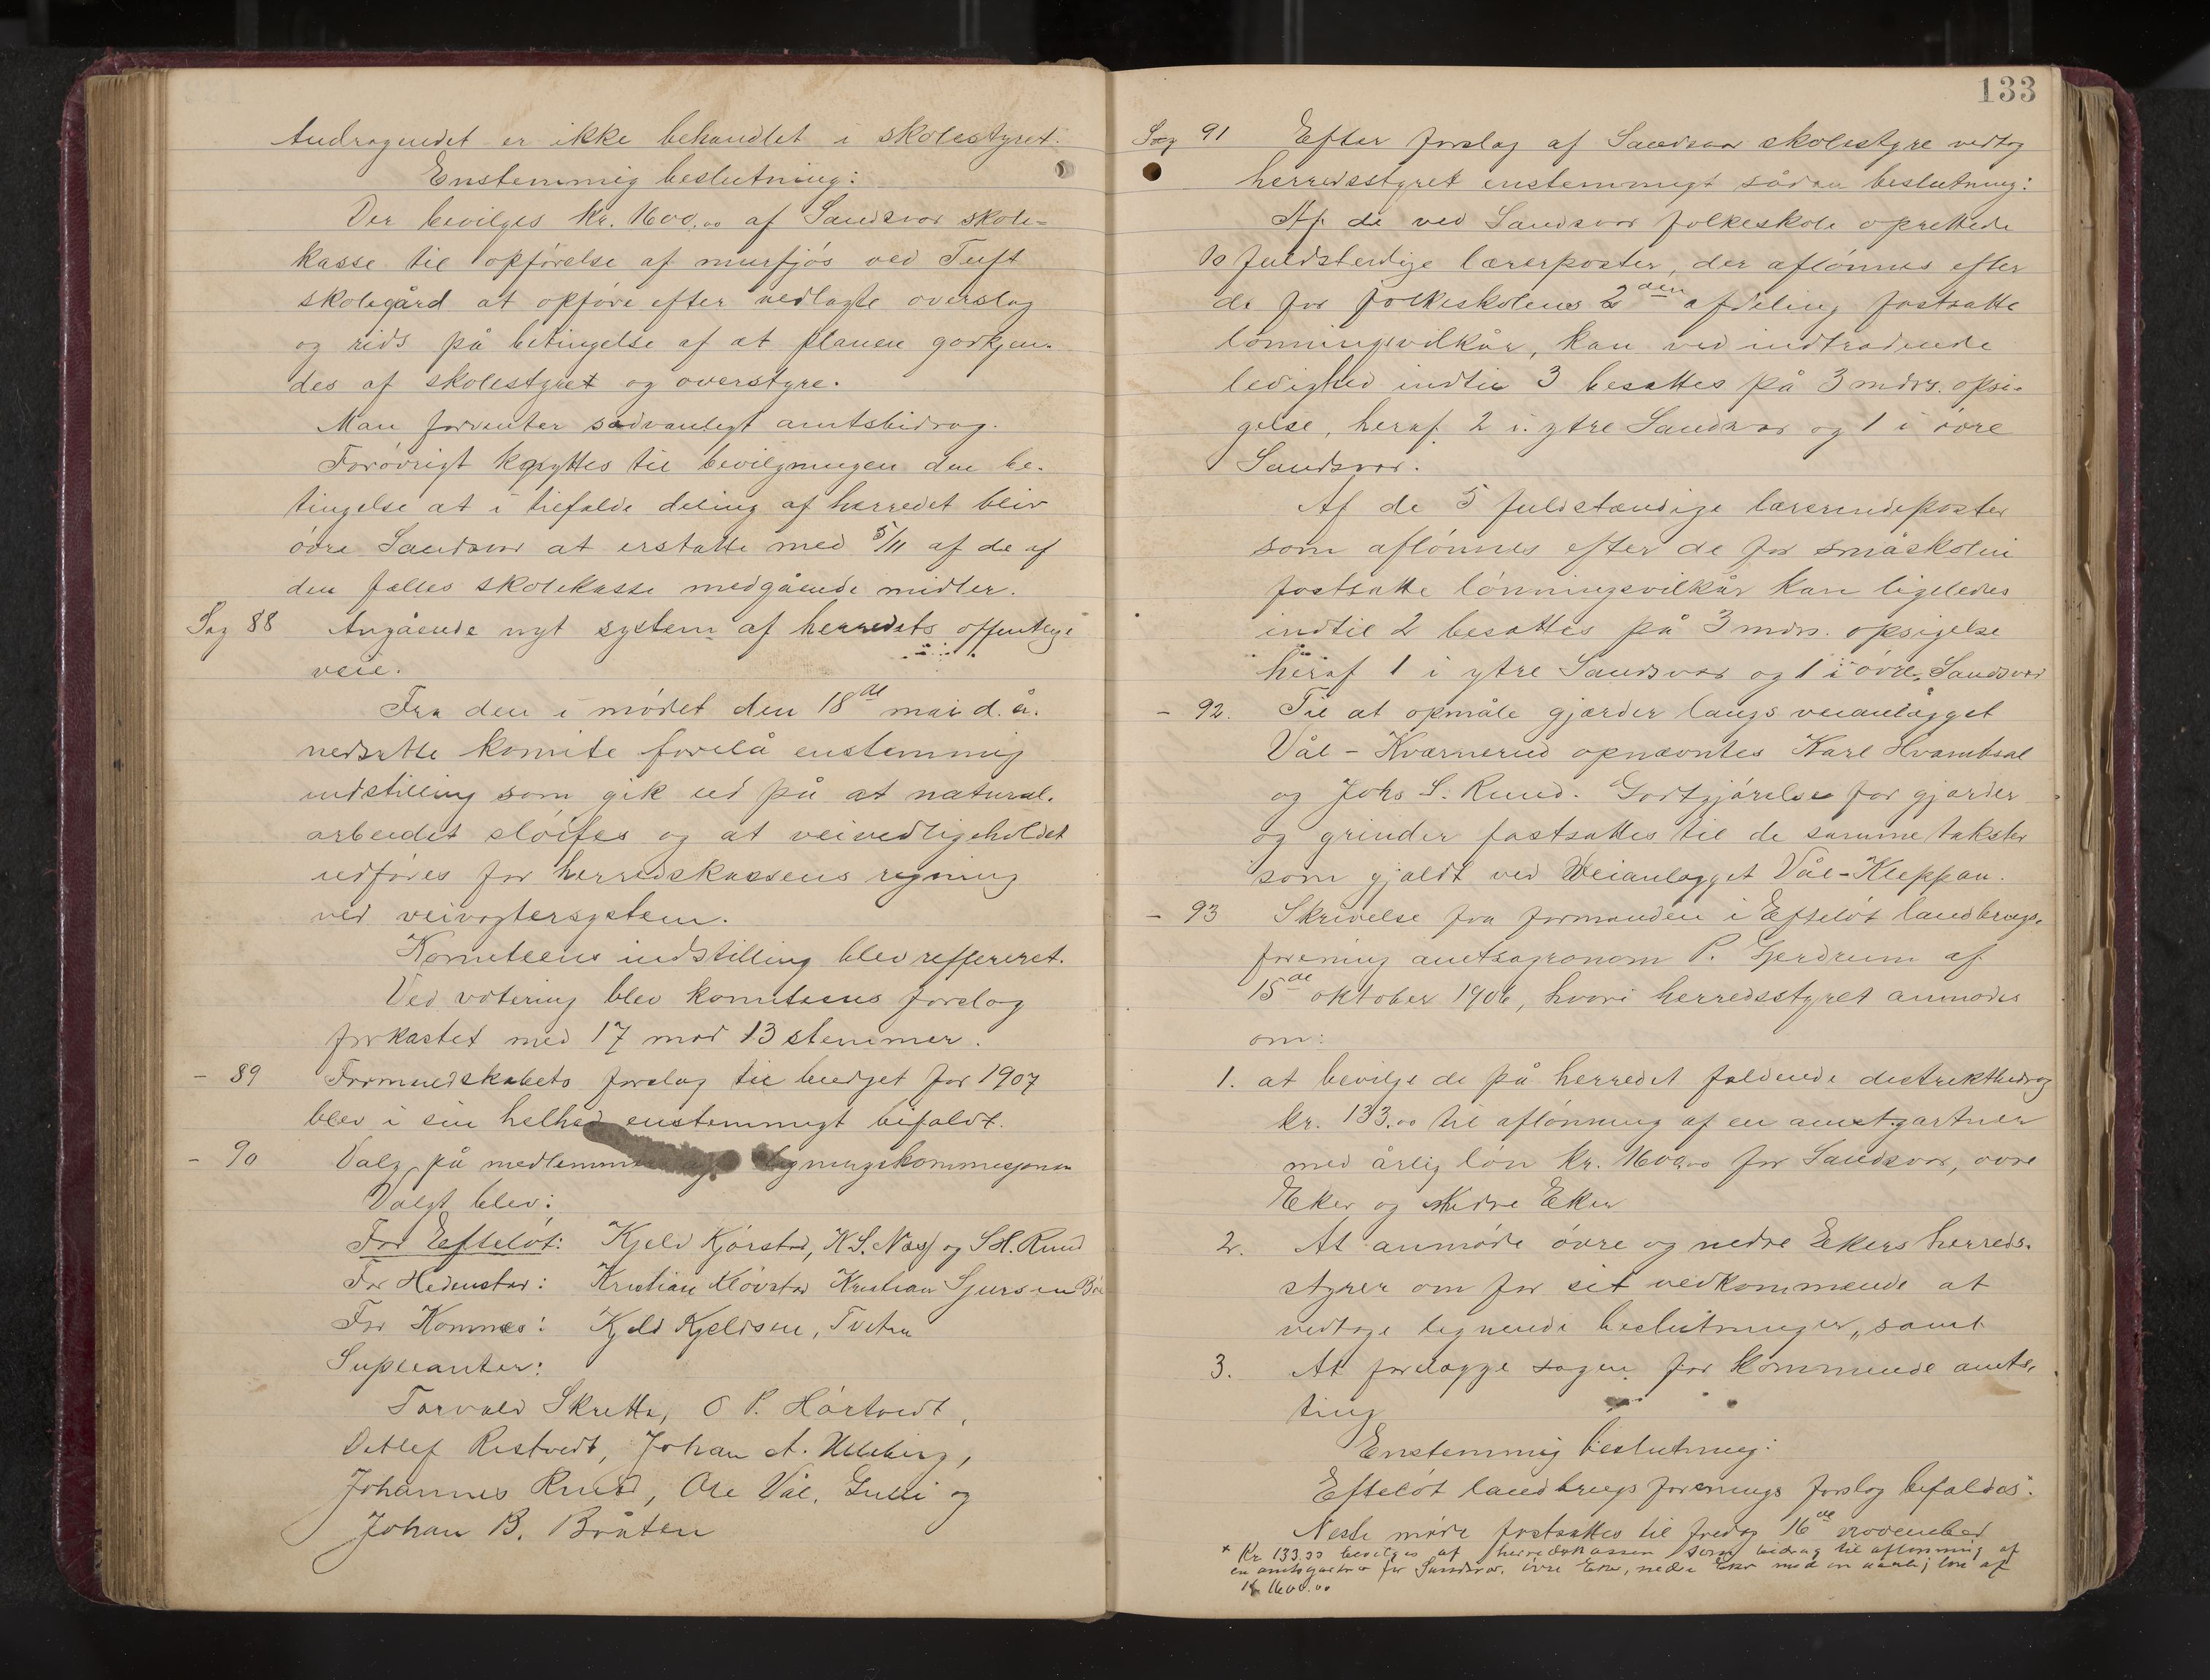 Andragendet er ikke behandlet i skolestyret.
Enstemmig beslutning:
Der bevilges kr. 1600.00 af Sandsvær skole-
kasse til opførelse af murfjøs ved Tuft
skolegård at opføre efter vedlagte overslag
og rids på betingelse af at planen godkjen-
des af skolestyret og overstyre.
Man forventer sædvanligt amtsbidrag.
Forøvrigt knyttes til bevilgningen den be-
tingelse at i tilfælde deling af herredet bliv
øvre Sandsvær at erstatte med 5/11 af de af
den fælles skolekasse medgående midler.
Sag 88 Angående nyt system af herredets offentlige
veie.
Fra den i mødet den 18de mai d.å.
nedsatte komite forelå enstemmig
indstilling som gik ud på at natural-
arbeidet sløifes og at veivedligeholdet
udføres for herredskassens regning
ved veivogtersystem.
Komiteens indstilling blev reffereret.
Ved votering blev komiteens forslag
forkastet med 17 mod 13 stemmer.
- 89 Formandskabets forslag til budget for 1907
blev i sin helhed enstemmigt bifaldt.
- 90 Valg på medlemmer af ligningskommisjonen
Valgt blev:
For Efteløt: Kjeld Kjørstad, K S. Næss og S H. Rund
For Hedenstad: Kristian Kløvstad Kristian Sjursen
For Komnes: Kjeld Kjeldsen, Tveten
Supleanter:
Torvald Skrette, O P. Hørtvedt,
Detlef Ristvedt, Johan A. Ulleberg,
Johannes Rund, Ole Vål, Gulli og
Johan B. Bråten
133
Sag 91 Efter forslag af Sandsvær skolestyre vedtog
herredsstyret enstemmigt sådan beslutning:
Af de ved Sandsvær folkeskole oprettede
10 fuldstendige lærerposter, der aflønnes efter
de for folkeskolens 2den afdeling fastsatte
lønningsvilkår, kan ved indtrædende
ledighed indtil 3 besættes på 3 mdrs. opsi-
gelse, heraf 2 i ytre Sandsvær og 1 i øvre
Sandsvær.
Af de 5 fuldstændige lærerindeposter
som aflønnes efter de for småskolen
fastsatte lønningsvilkår kan ligeledes
indtil 2 besættes på 3 mdrs. opsigelse
heraf 1 i ytre Sandsvær og 1 i øvre Sandsvær
- 92. Til at opmåle gjærder langs veianlægget
Vål - Kværnerud opnævntes Karl Hvambsal
og Johs S. Rund. Godtgjørelse for gjærder
og grinder fastsattes til de samme takster
som gjaldt ved Veianlægget Vål-Kleppan.
- 93 Skrivelse fra formanden i Efteløt landbrugs-
forening amtsagronom P. Gjerdrum af
15de oktober 1906, hvori herredsstyret anmodes
om:
1. at bevilge de på herredet faldende distriktbidrag
kr. 133.00 til aflønning af en amtgartner
med årlig løn kr. 1600.00 for Sandsvær, øvre
Eker og Nedre Eker
2. At anmode øvre og nedre Ekers herreds-
styrer om for sit vedkommende at
vedtage lignende beslutninger, samt
3. At forelægge sagen for kommende amts-
ting
Enstemmig beslutning:
Efteløt landbrugsforenings forslag bifaldes.x
Neste møde fastsattes til fredag 16de november
x Kr 133.33 bevilges af herredskassen som bidrag til aflønning af
en amtsgartner for Sandsvær, øvre Eker, nedre Eker med en aarlig løn af
kr 1600.00